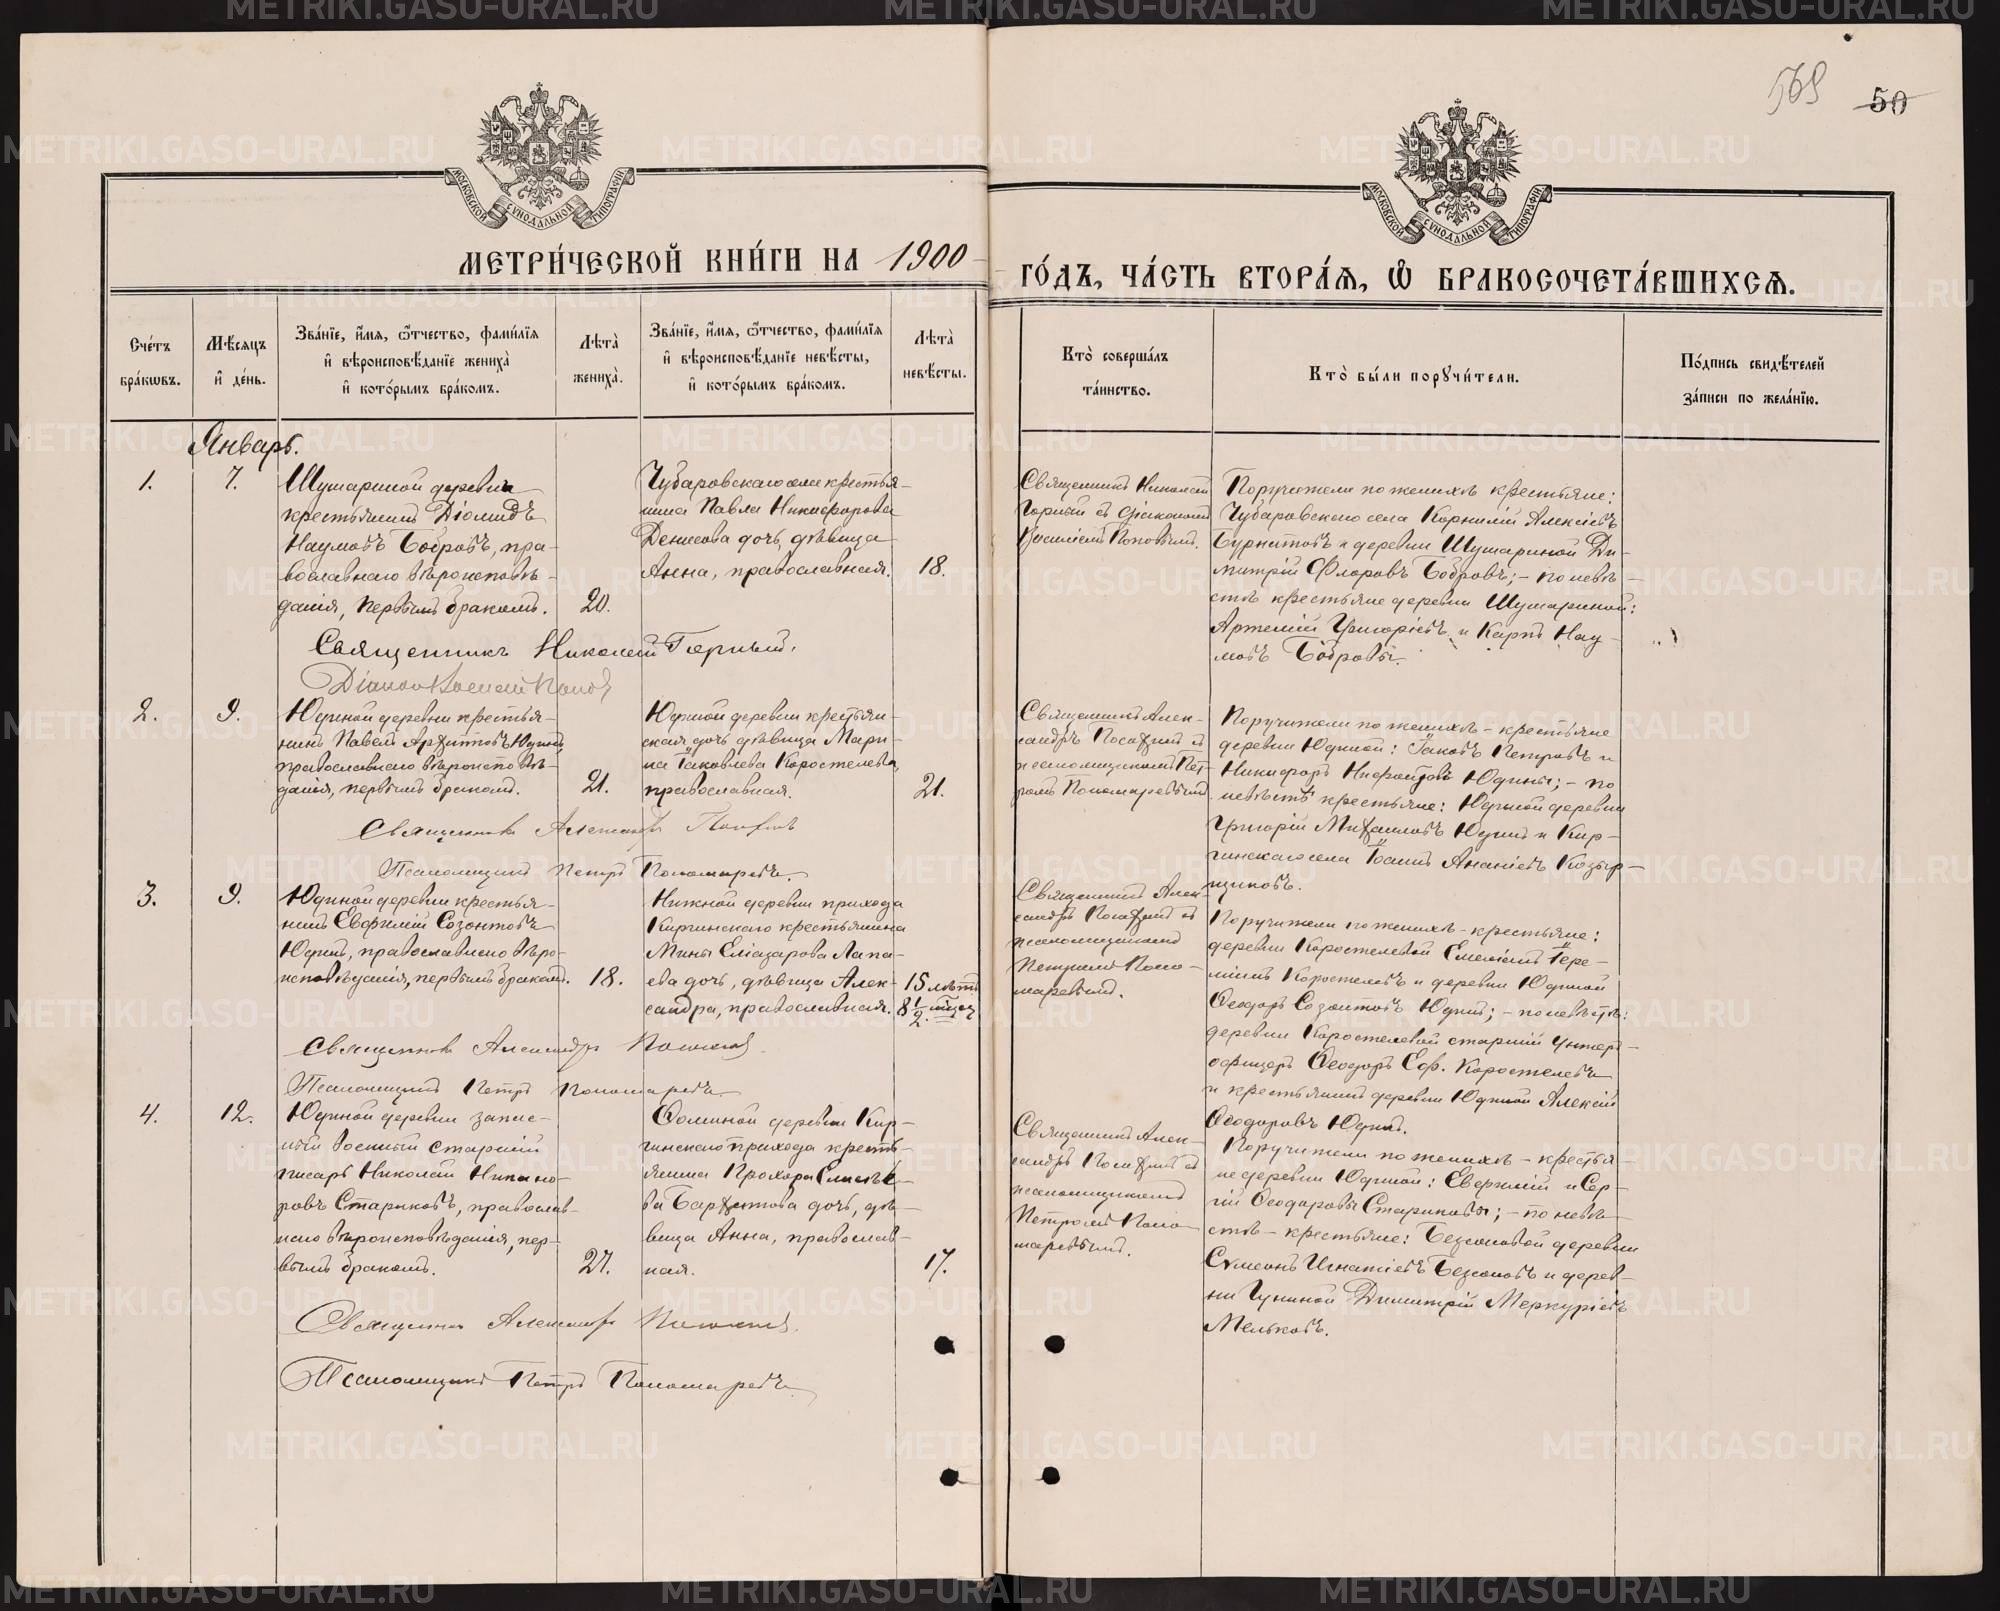 569 50
МОСКОВСКОЙ СУНОДАЛЬНОЙ ТИПОГРАФІИ
МОСКОВСКОЙ СУНОДАЛЬНОЙ ТИПОГРАФІИ
МЕТРИ́ЧЕСКОЙ КНИ́ГИ НА 1900
ГО́ДЪ, ЧА́СТЬ ВТОРА́Ѧ, Ѡ҆ БРАКОСОЧЕТА́ВШИХСѦ.
Сче́тъ
бра́кωвъ.
Мѣ́сѧцъ
и҆ де́нь.
Зва́нїе, и҆́мѧ, ѻ҆́тчество, фами́лїѧ
и҆ вѣроисповѣ́данїе жениха̀
и҆ кото́рымъ бра́комъ.
Лѣ́та
жениха̀.
Зва́нїе, и҆́мѧ, ѻ҆́тчество, фами́лїѧ
и҆ вѣроисповѣ́данїе невѣ́сты,
и҆ кото́рымъ бра́комъ.
Лѣ́та
невѣ́сты.
Кто̀ соверша́лъ
та́инство.
Кто̀ бы́ли порꙋчи́тели.
По́дпись свидѣ́телей
за́писи по жела́нїю.
Январь.
1.
7.
Шушариной деревни
крестьянинъ Діомидъ
Наумовъ Бобровъ, пра-
вославнаго вѣроисповѣ-
данія, первымъ бракомъ.
20.
Чубаровскаго села крестья-
нина Павла Никифорова
Денисова дочь, дѣвица
Анна, православная.
18.
Священникъ Николай
Горный съ діакономъ
Василіемъ Поповымъ.
Поручители по женихѣ крестьяне:
Чубаровскаго села Корнилій Алексѣевъ
и деревни Шушариной Ди-
митрій Флоровъ Бобровъ; - по невѣ-
стѣ крестьяне деревни Шушариной:
Артемій Григорьевъ и Карпъ Нау-
мовъ Бобровы.
Священникъ Николай Горный.
Діаконъ Василій Поповъ
2.
9.
Юдиной деревни крестья-
нинъ Павелъ Юдинъ
православнаго вѣроисповѣ-
данія, первымъ бракомъ.
21.
Юдиной деревни крестьян-
ская дочь дѣвица Мари-
на Іаковлева Коростелева,
православная.
21.
Священникъ Алек-
сандръ съ
псаломщикомъ Пет-
ромъ Пономаревымъ
Поручители по женихѣ - крестьяне
деревни Юдиной: Іаковъ Петровъ и
Никифоръ Юдины; - по
невѣстѣ крестьяне: Юдиной деревни
Григорій Михаиловъ Юдинъ и Кир-
гинскаго села Іоаннъ Ананіевъ Козыр-
щиковъ.
Священникъ Александръ
Псаломщикъ Петръ Пономаревъ.
3.
9.
Юдиной деревни крестья-
нинъ Евфимій Созонтовъ
Юдинъ, православнаго вѣро-
исповѣданія, первымъ бракомъ.
18.
Нижной деревни прихода
Киргинскаго крестьянина
Мины Еліазарова Лапа-
ева дочь, дѣвица Алек-
сандра, православная.
15 лѣтъ
8 1/2 мѣсяц
Священникъ Алек-
сандръ съ
псаломщикомъ
Петромъ Поно-
маревымъ.
Поручители по женихѣ - крестьяне:
деревни Коростелевой Емеліанъ Іере-
міинъ Коростелевъ и деревни Юдиной
Ѳеодоръ Созонтовъ Юдинъ; - по невѣстѣ:
деревни Коростелевой старшій унтеръ-
офицеръ Ѳеодоръ Еф. Коростелевъ
и крестьянинъ деревни Юдиной Алексій
Ѳеодоровъ Юдинъ.
Священникъ Александръ
Псаломщикъ Петръ Пономаревъ
4.
12.
Юдиной деревни запас-
ный военный старшій
писарь Николай Никано-
ровъ Стариковъ, православ-
наго вѣроисповѣданія, пер-
вымъ бракомъ.
27.
Ѳоминой деревни Кир-
гинскаго прихода кресть-
янина Прохора
дочь, дѣ-
вица Анна, православ-
ная.
17.
Священникъ Алек-
сандръ съ
псаломщикомъ
Петромъ Поно-
маревымъ.
Поручители по женихѣ - крестья-
не деревни Юдиной: Евфимій и Сер-
гій Ѳеодоровы Стариковы; - по невѣ-
стѣ - крестьяне: деревни
Сѵмеонъ Игнатіевъ и дерев-
ни Димитрій Меркуріевъ
Мельковъ.
Священникъ Александръ
Псаломщикъ Петръ Пономаревъ